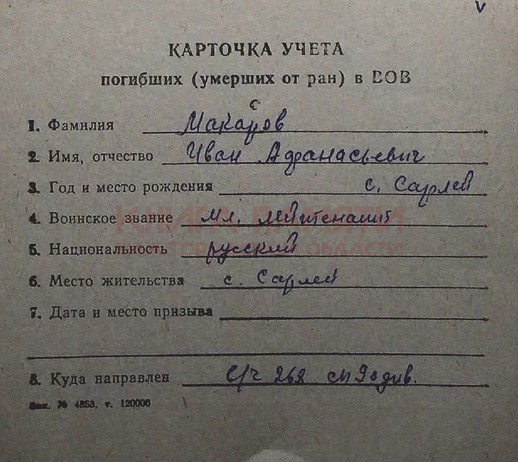 КАРТОЧКА УЧЕТА
погибших (умерших от ран) в ВОВ
с
1. Фамилия Макаров
2. Имя, отчество Иван Афанасьевич
3. Год и место рождения с. Сарлей
4. Воинское звание мл. лейтенант
КНИГА ПАМЯТИ
5. Национальность русский
ОБЛАСТИ
6. Место жительства с. Сарлей
7. Дата и место призыва
8. Куда направлен с/ч 262
Зак. № 4853, т. 120000